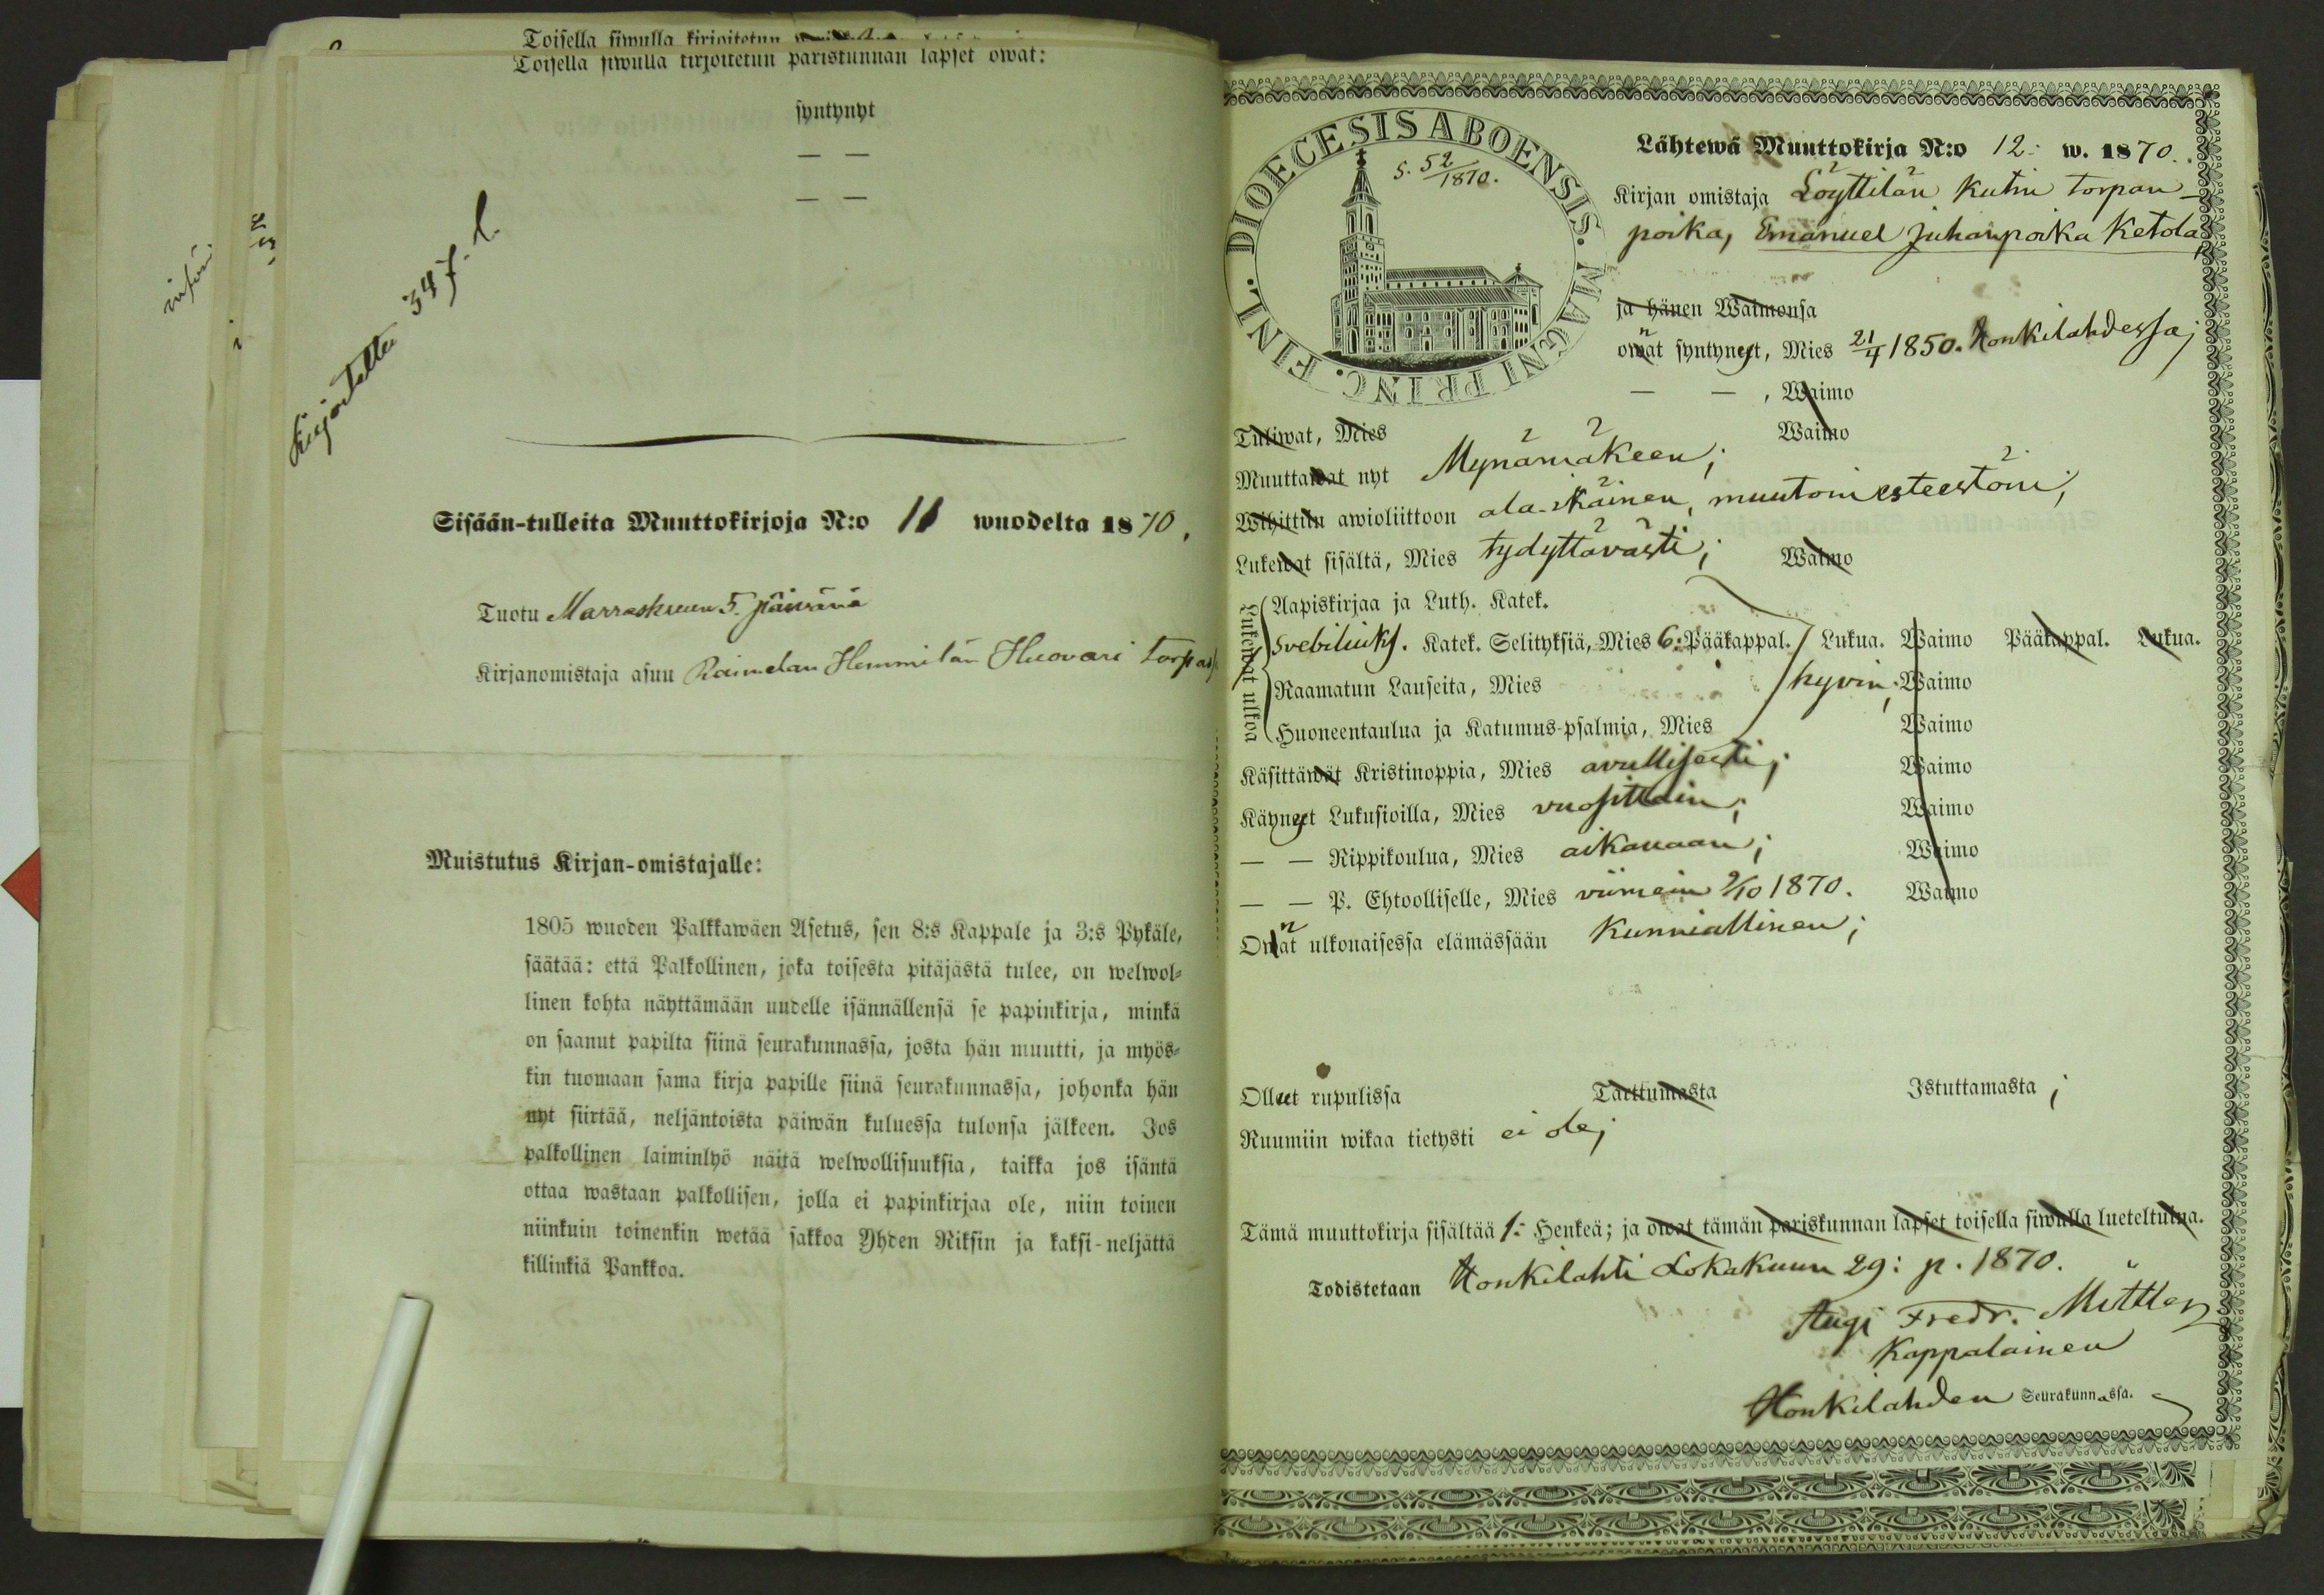 Toisella siwulla kirjoitetun
Toisella siwulla kirjoitetun pariskunnan lapset owat:
syntynyt
— —
— —
Kirjoitettu 347. l.
Sisään-tulleita Muuttokirjoja N:o 11 wuodelta 1870,
Tuotu Marraskuun 5. päivänä
Kirjanomistaja asuu Raimelan Hemmilän Huovari torpas
Muistutus Kirjan-omistajalle:
1805 wuoden Palkkawäen Asetus, sen 8:s Kappale ja 3:s Pykäle,
säätää: että Palkollinen, joka toisesta pitäjästä tulee, on welwol-
linen kohta näyttämään uudelle isännällensä se papinkirja, minkä
on saanut papilta siinä seurakunnassa, josta hän muutti, ja myös-
kin tuomaan sama kirja papille siinä seurakunnassa, johonka hän
nyt siirtää, neljäntoista päiwän kuluessa tulonsa jälkeen. Jos
palkollinen laiminlyö näitä welwollisuuksia, taikka jos isäntä
ottaa wastaan palkollisen, jolla ei papinkirjaa ole, niin toinen
niinkuin toinenkin wetää sakkoa Yhden Riksin ja kaksi-neljättä
killinkiä Pankkoa.
DIOECESIS ABOENSIS. MAGNI PRINC. FINL.
S. 52/1870.
Lähtewä Muuttokirja N:o 12: w. 1870.
Kirjan omistaja Löyttilän Kutin torpan
poika, Emanuel Juhanpoika Ketola,
ja hänen Waimonsa
owat syntynyt, Mies 21/4 1850. Honkilahdessa;
— — , Waimo
Tuliwat, Mies Waimo
Muuttawat nyt Mynämäkeen;
Wihittiin awioliittoon ala-ikäinen, muutoin esteetöin;
Lukewat sisältä, Mies tydyttävästi; Waimo
Lukewat ulkoa
Aapiskirjaa ja Luth. Katek.
Svebiliuks. Katek. Selityksiä, Mies 6: Pääkappal. Lukua. Waimo Pääkappal. Lukua.
Raamatun Lauseita, Mies hyvin; Waimo
Huoneentaulua ja Katumus-psalmia, Mies Waimo
Käsittäwät Kristinoppia, Mies avullisesti; Waimo
Käynyt Lukusioilla, Mies vuosittain; Waimo
— — Rippikoulua, Mies aikanaan; Waimo
— — P. Ehtoolliselle, Mies viimein 9/10 1870. Waimo
Owat ulkonaisessa elämässään Kunniallinen;
Ollut rupulissa Tarttumasta Istuttamasta;
Ruumiin wikaa tietysti ei ole;
Tämä muuttokirja sisältää 1: Henkeä; ja owat tämän pariskunnan lapset toisella siwulla lueteltuina.
Todistetaan Honkilahti Lokakuun 29: p. 1870.
Fredr.
Kappalainen
Honkilahden Seurakunnassa.